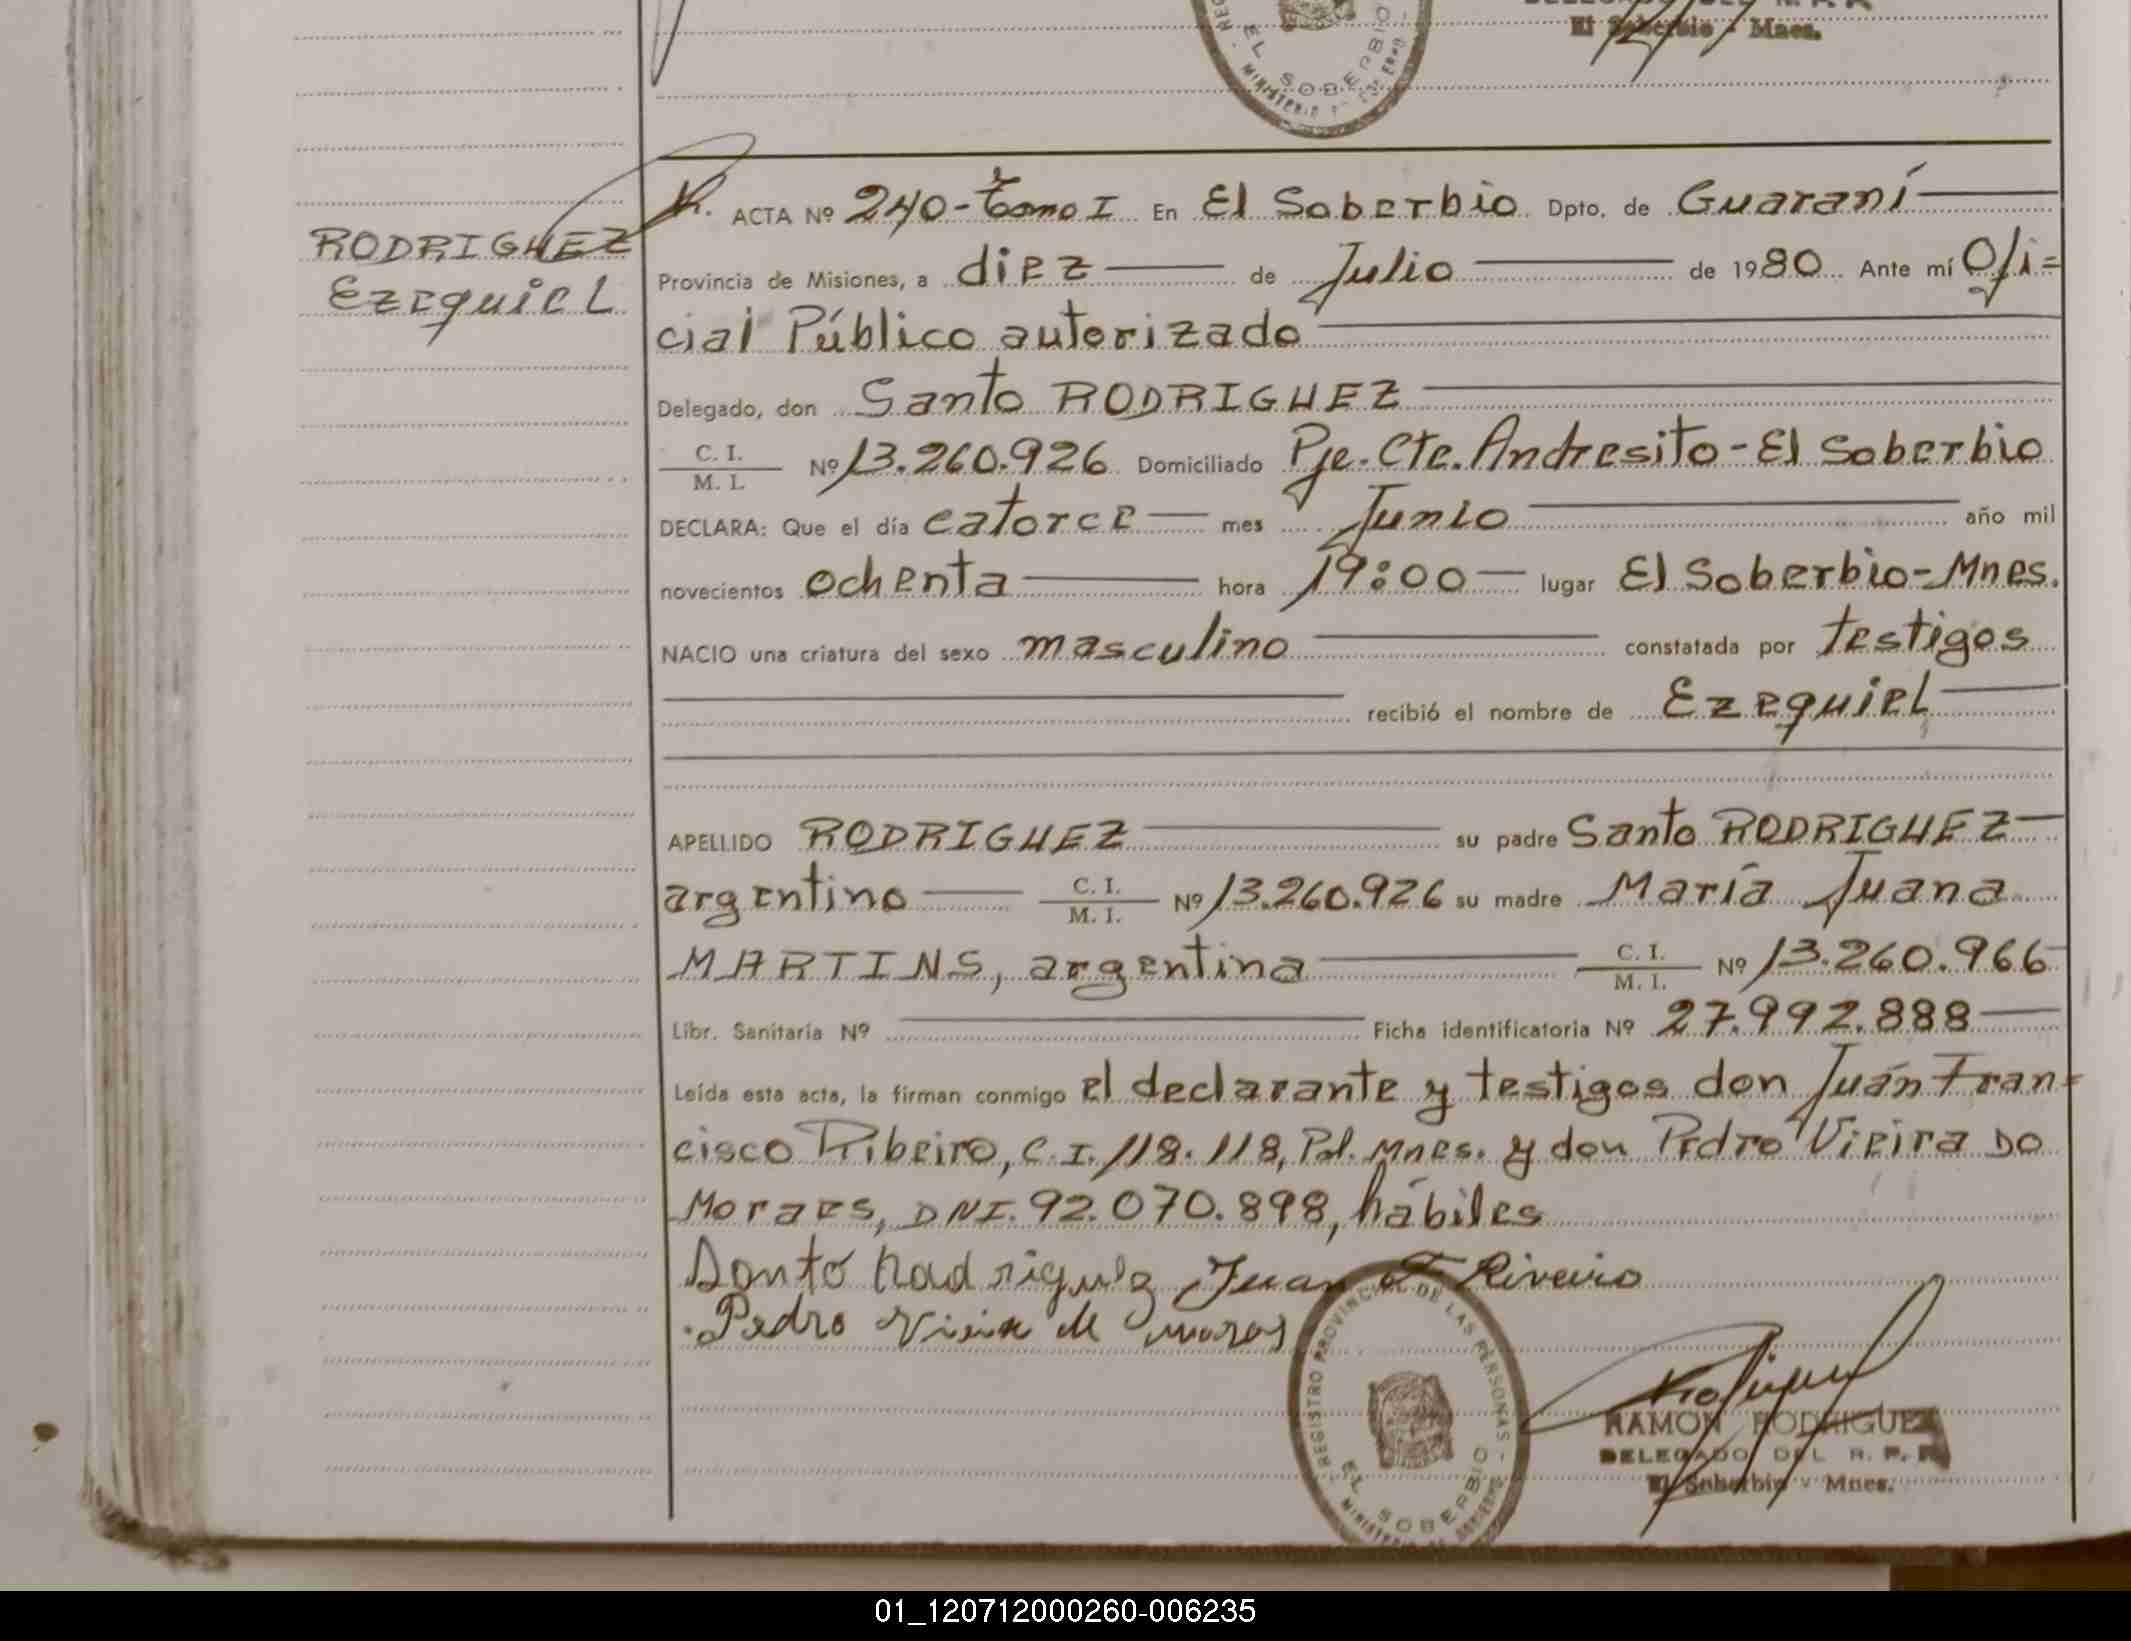 El Soberbio - Mnes.
EL SOBERBIO
RODRIGUEZ
Ezequiel
ACTA Nº 240-Tomo I En El Soberbio Dpto. de Guaraní
Provincia de Misiones, a diez de Julio de 1980 Ante mí Ofi=
cial Público autorizado
Delegado, don Santo RODRIGUEZ
C. I.
M. I. Nº 13.260.926 Domiciliado Pje. Cte. Andresito - El Soberbio
DECLARA: Que el día catorce mes Junio año mil
novecientos ochenta hora 19:00 lugar El Soberbio-Mnes.
NACIO una criatura del sexo masculino constatada por testigos
recibió el nombre de Ezequiel
APELLIDO RODRIGUEZ su padre Santo RODRIGUEZ
argentino C. I. M. I. Nº 13.260.926 su madre María Juana
MARTINS, argentina C. I. M. I. Nº 13.260.966
Libr. Sanitaria Nº Ficha identificatoria Nº 27.992.888
Leída esta acta, la firman conmigo el declarante y testigos don Juán Fran=
cisco Ribeiro, C.I. 118.118, Pol. Mnes. y don Pedro Vieira DO
Moraes, DNI. 92.070.898, hábiles
Santo Rodriguez Juan F Riveiro
Pedro Vieira de moraes
REGISTRO PROVINCIAL DE LAS PERSONAS - EL SOBERBIO
RAMON RODRIGUEZ
DELEGADO DEL R. P. P.
El Soberbio - Mnes.
01_120712000260-006235